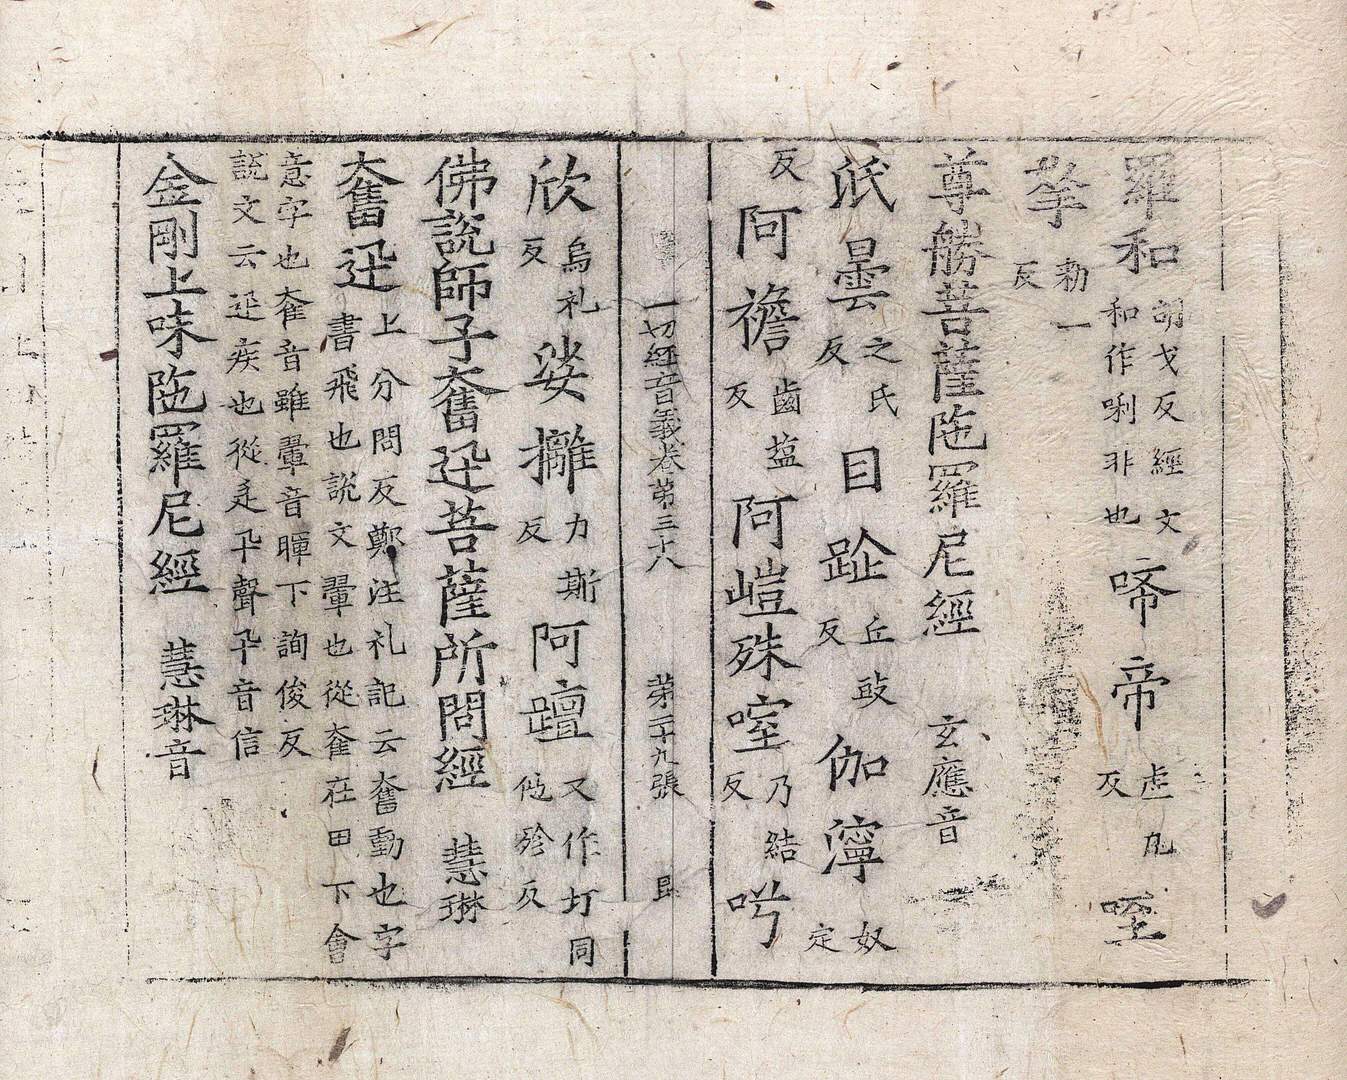 羅和胡戈反經文和作唎非也啼帝虗凡反
孥勑一反
尊勝菩薩陁羅尼經 玄應音
泜曇之氏反目跐丘豉反伽濘奴定
反阿襜齒塩反阿嵦殊喹乃結反
一切經音義卷第三十八 第二十九張
欣烏礼反娑攡力斯反阿䠤又作圢同他殄反
佛說師子奮迅菩薩所問經 慧琳
奮迅上分問反鄭注礼記云奮動也字書飛也說文翬也從奞在田下會
意字也奞音雖翬音暉下詢俊反說文云迅疾也從辵卂聲卂音信
金剛上味陁羅尼經 慧琳音